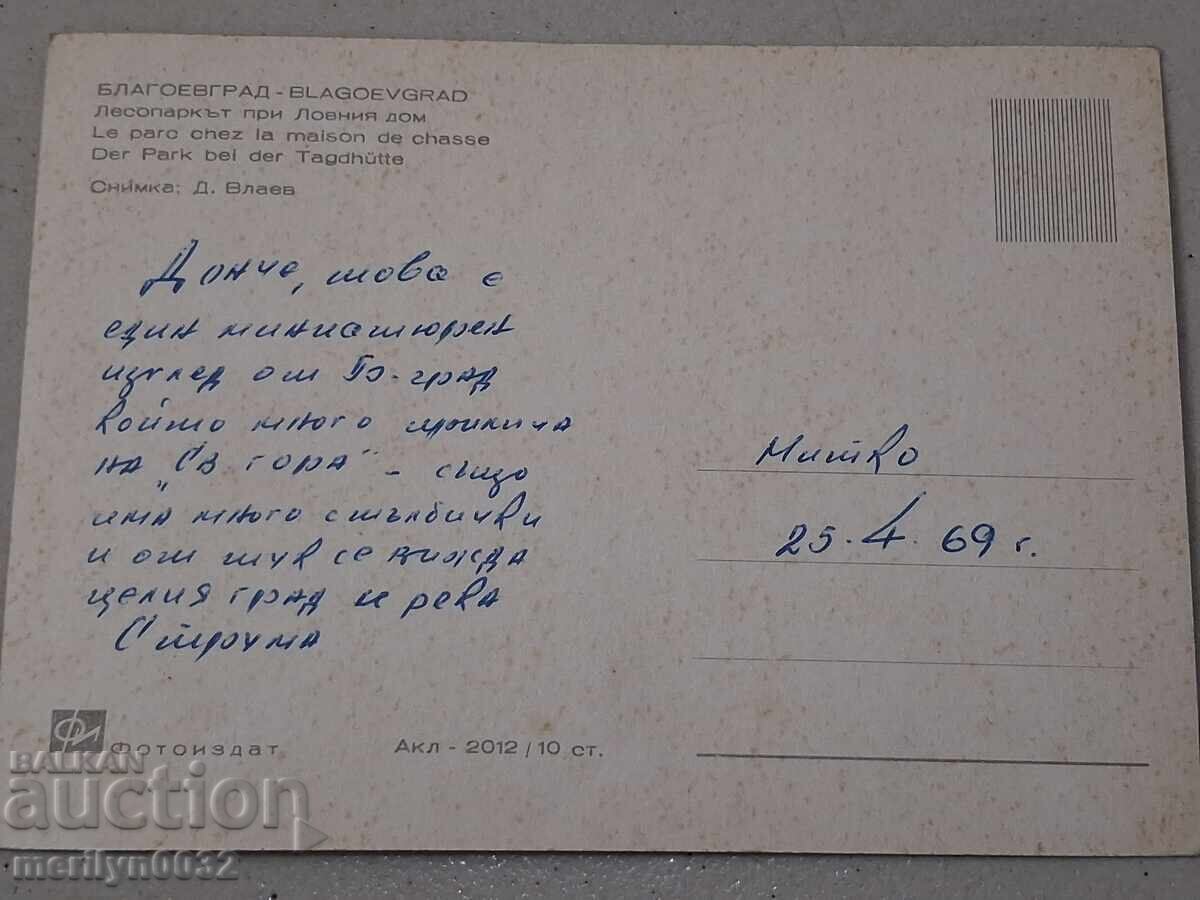 БЛАГОЕВГРАД - BLAGOEVGRAD
Лесопаркът при Ловния дом
Le parc chez la maison de chasse
Der Park bei der Tagdhütte
Снимка: Д. Влаев
Донче, това е
един миниатюрен
изглед от Бл-град
който много прилича
на „Св гора" - също
има много стълбички
и от тук се вижда
целия град и река
Струма
Митко
25.4.69 г.
Фотоиздат
Акл - 2012 / 10 ст.
BALKAN
auction
merilyn0032